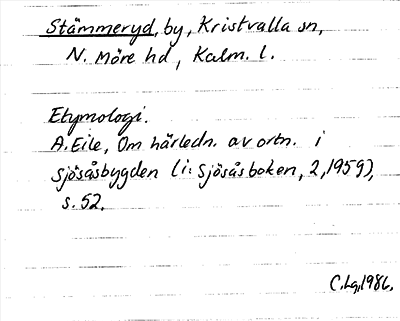 Stämmeryd, by, Kristvalla sn,
N. Möre hd, Kalm. l.
Etymologi.
A. Eile, Om härledn. av ortn. i
Sjösåsbygden (i: Sjösåsboken, 2, 1959),
s. 52.
C. Lg, 1986.